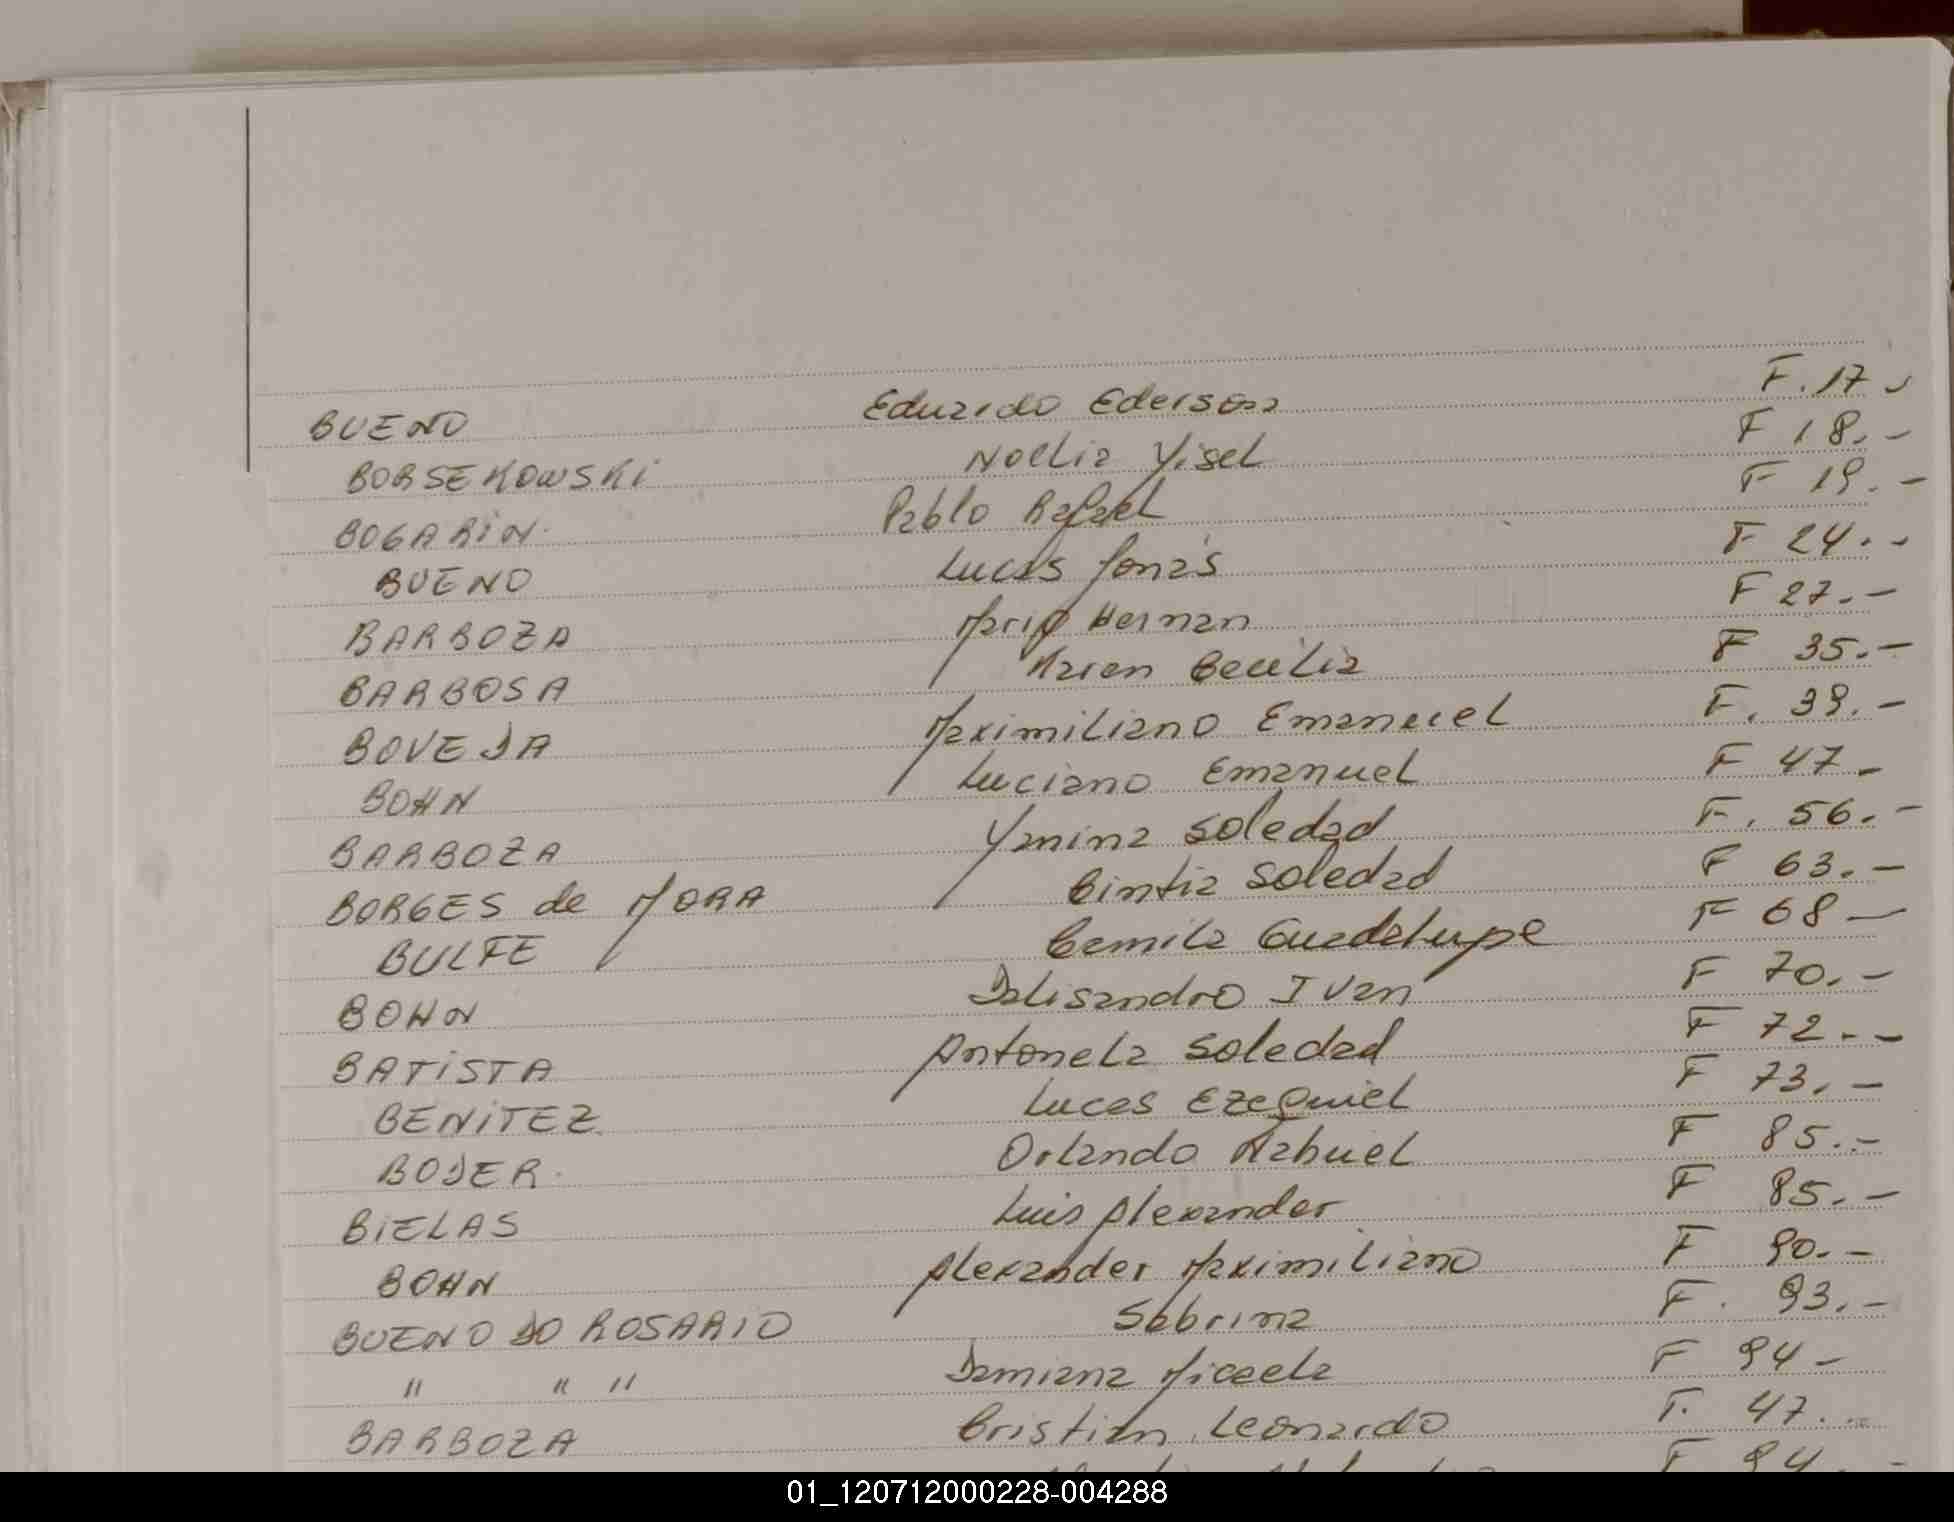 BUENO Eduardo Ederson F. 17.-
BORSEKOWSKI Noelia Yisel F 18.-
BOGARIN. Pablo Rafael F 19.-
BUENO Lucas Jonás F 24.-
BARBOZA Mario Hernan F 27.-
BARBOSA Karen Cecilia F 35.-
BOVEDA Maximiliano Emanuel F. 39.-
BOHN Luciano Emanuel F 47.-
BARBOZA Yanina Soledad F. 56.-
BORGES de MORA Cintia Soledad F 63.-
BULFE Camila Guadalupe F 68-
BOHN Dalisandro Ivan F 70.-
BATISTA Antonela Soledad F 72.-
BENITEZ. Lucas Ezequiel F 73.-
BODER. Orlando Nahuel F 85.-
BIELAS Luis Alexander F 85.-
BOHN Alexander Maximiliano F 90.-
BUENO DO ROSARIO Sabrina F. 93.-
" " " Damiana Micaela F 94-
BARBOZA Cristian Leonardo F. 47.-
F 94.-
01_120712000228-004288